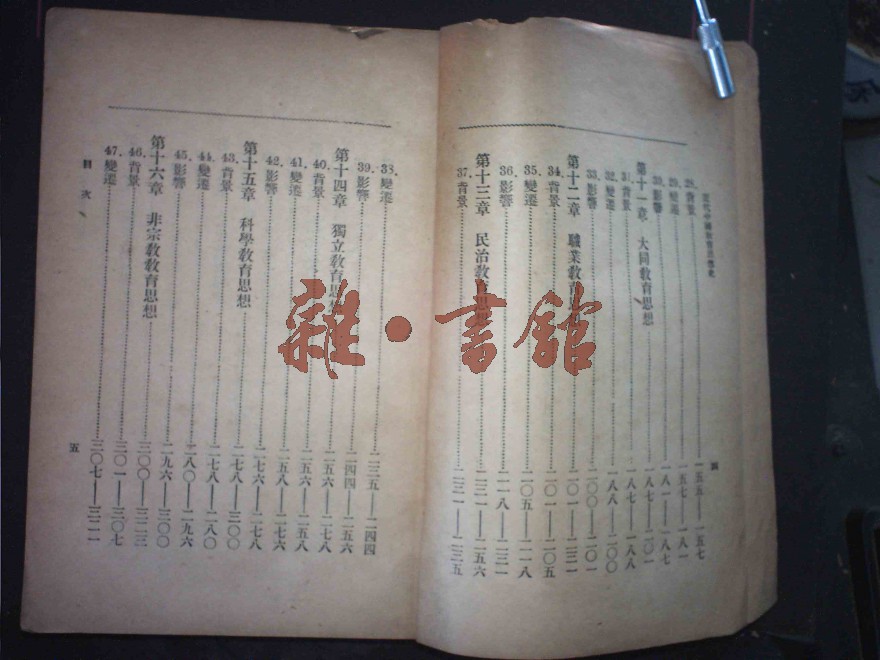 近代中國教育思想史
四
28. 背景……一五五——一五七
29. 變遷……一五七——一八一
30. 影響……一八一——一八七
第十一章 大同教育思想……一八七——二〇一
31. 背景……一八七——一八八
32. 變遷……一八八——二〇〇
33. 影響……二〇〇——二〇一
第十二章 職業教育思……二〇一——二二一
34. 背景……二〇一——二〇五
35. 變遷……二〇五——二一八
36. 影響……二一八——二二一
第十三章 民治教育思想……二二一——二五六
37. 背景……二二一——二三五
38. 變遷……二三五——二四四
39. 影響……二四四——二五六
第十四章 獨立教育思想……二五六——二七八
40. 背景……二五六——二五八
41. 變遷……二五八——二七六
42. 影響……二七六——二七八
第十五章 科學教育思想……二七八——三〇〇
43. 背景……二七八——二八〇
44. 變遷……二八〇——二九六
45. 影響……二九六——三〇〇
第十六章 非宗教教育思想……三〇〇——三二三
46. 背景……三〇一——三〇七
47. 變遷……三〇七——三二一
目次
五
雜·書館